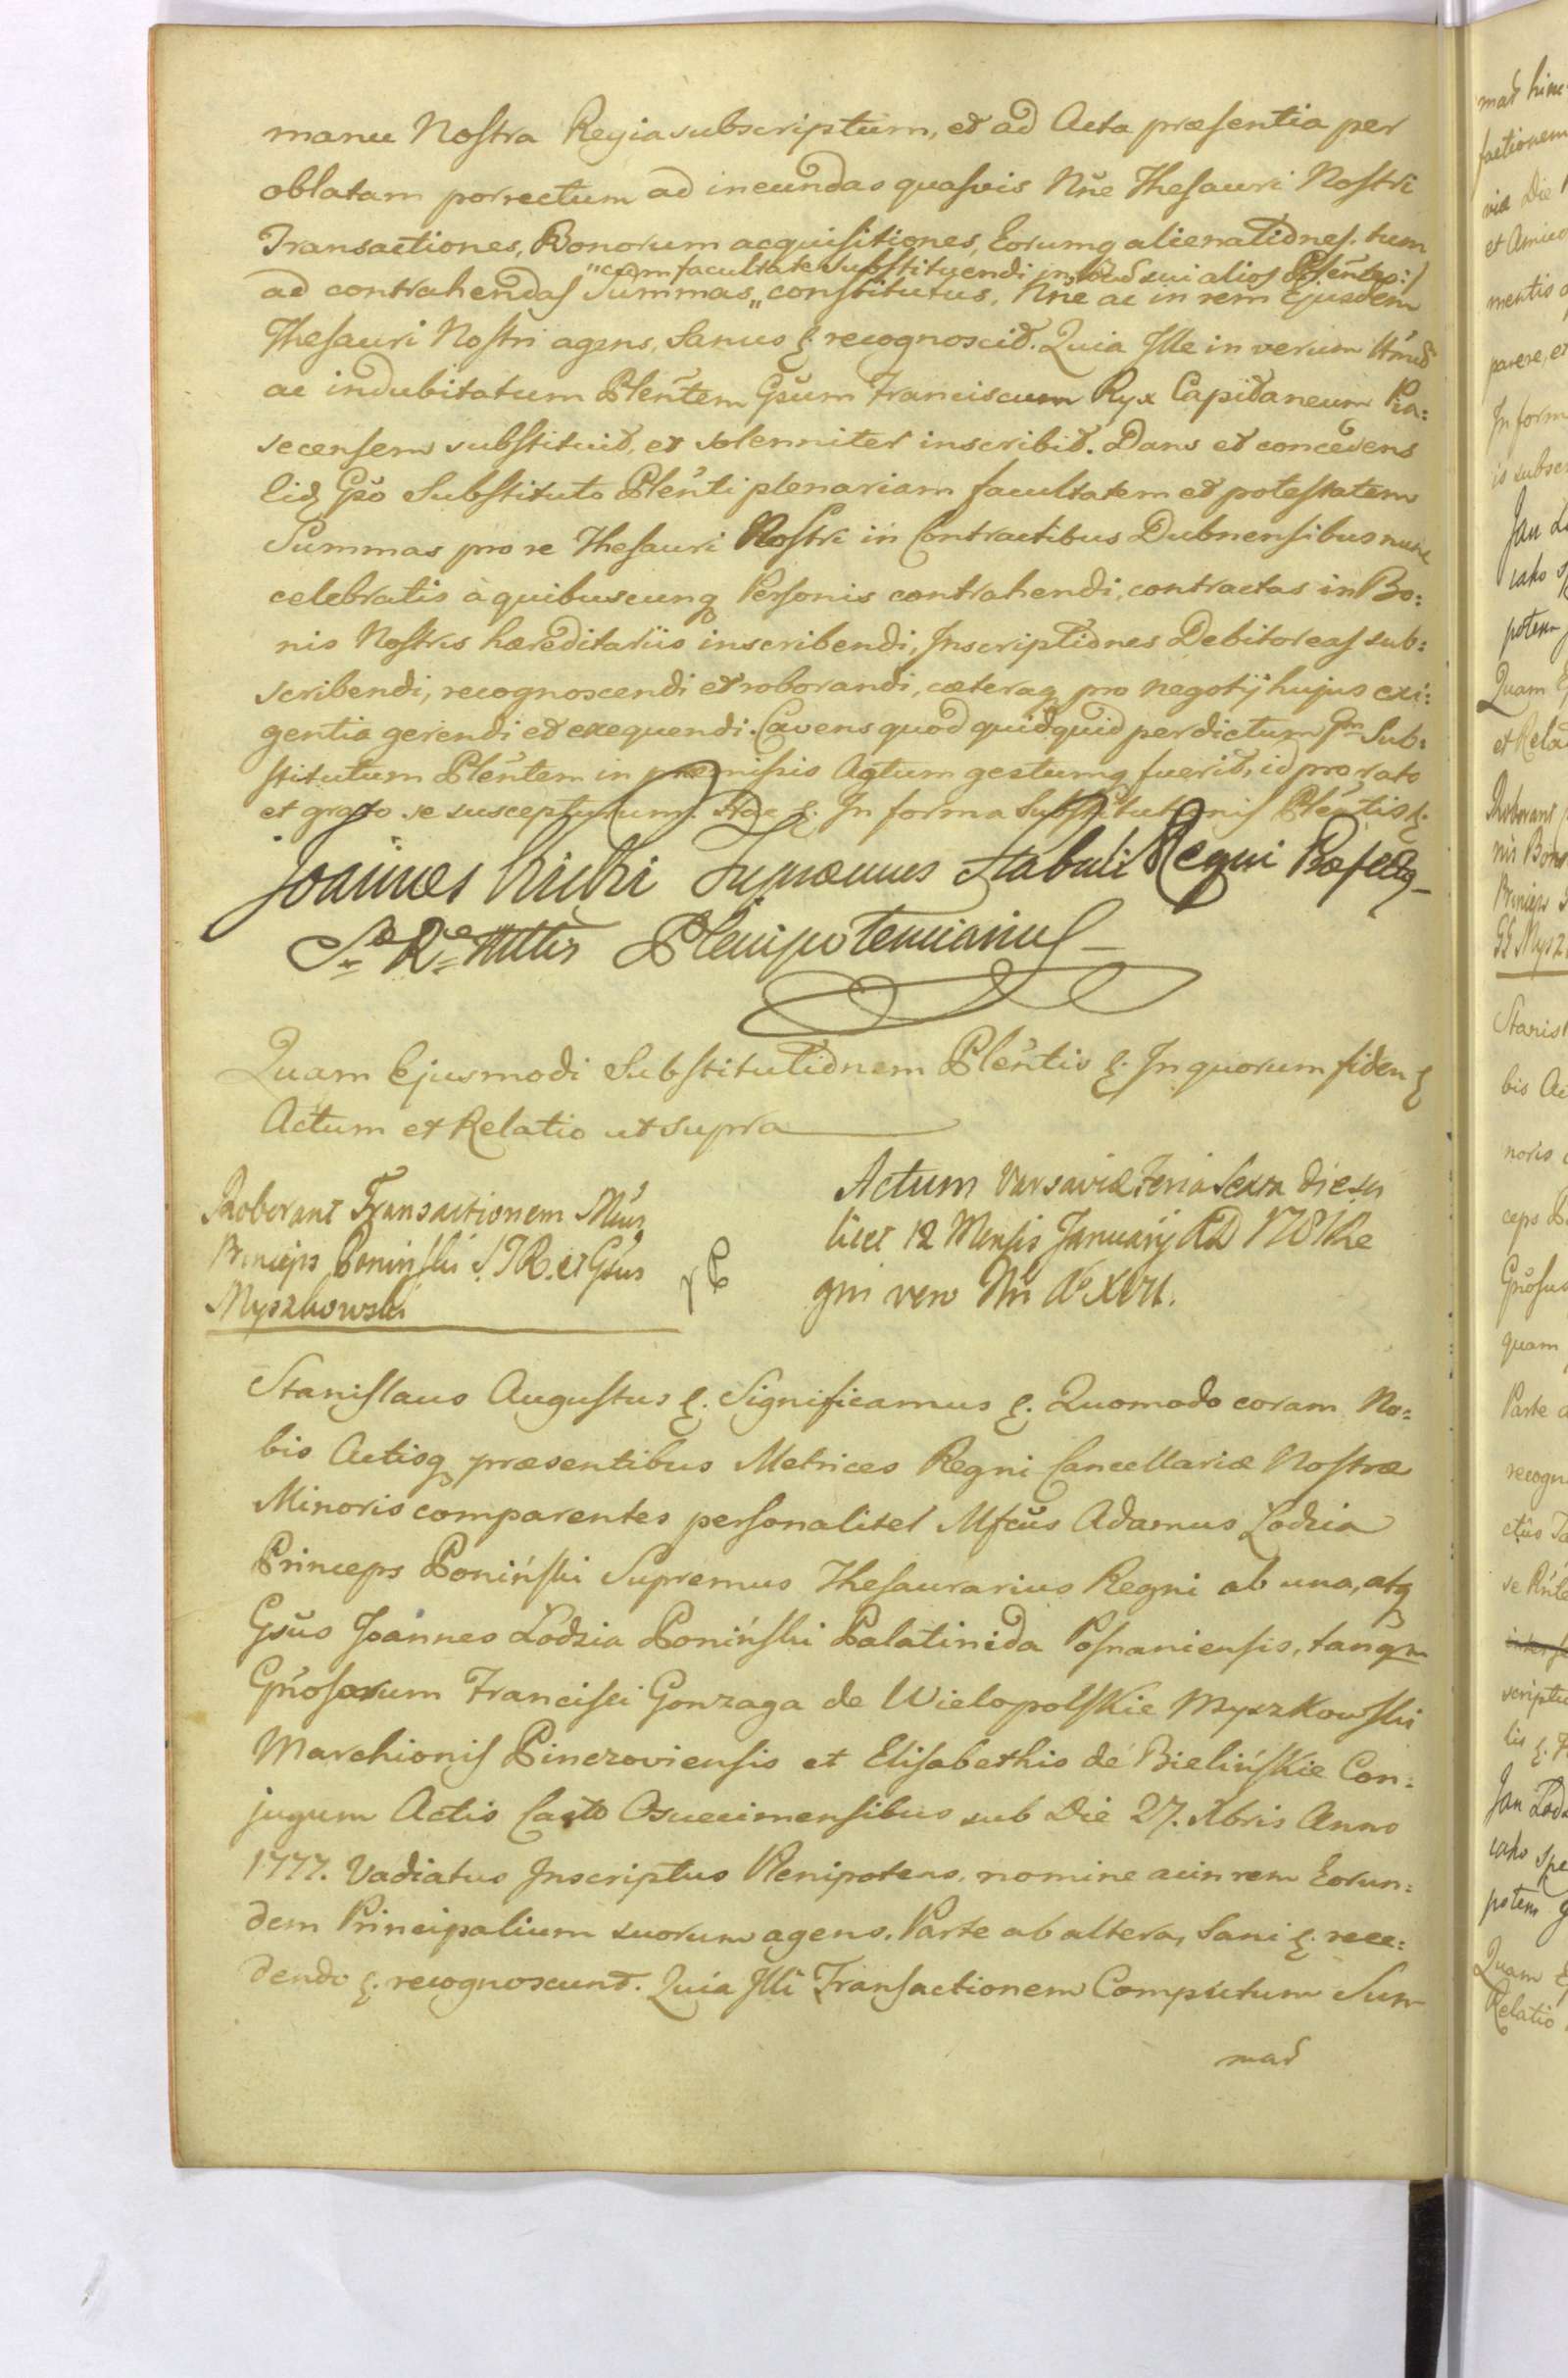 manu Nostra Regia subscriptum, et ad Acta præsentia per
oblatam porrectum ad ineundas quasvis Nñe Thesauri Nostri
Transactiones, Bonorum acquisitiones, Eorumq alienationes, tum
„cum facultate substituendi in sui alios Plentes:/
ad contrahendas Summas„ constitutus, Nñe ac in rem Ejusdem
Thesauri Nostri agens, Sanus &. recognoscit. Quia Ille in verum
ac indubitatum Pleñtem Gsũm Franciscum Ryx Capitaneum Pia:
secensem substituit, et solenniter inscribit. Dans et concedens
Eidq Gsõ Substituto Pleñti plenariam facultatem et potestatem
Summas pro re Thesauri Nostri in Contractibus Dubnensibus nunc
celebratis à quibuscunq Personis contrahendi, contractas in Bo:
nis Nostris hæreditariis inscribendi, Inscriptiones Debitoreas sub:
scribendi, recognoscendi et roborandi, cæteraq pro negotij hujus exi:
gentia gerendi et exequendi. Cavens quod quidquid per dictum Gm Sub:
stitutum Pleñtem in præmissis Actum gestumq fuerit, id pro rato
et grato se suscepturum. Hac &. In forma Substitutionis Pleñtis &.
Joannes Kicki Supræmus Stabuli Regni Præfectg
Sæ Ræ Mttis Plenipotentiarius
Quam Ejusmodi Substitutionem Pleñtis &. In quorum fidem &
Actum et Relatio ut supra
Roborant Transactionem
Princeps Poniński S. T. R. et Gsũs
Myszkowski
Actum Varsaviæ Feria Sexta die sci
licet 12 Mensis Januarij AD 1781 Re
gni vero Nri Ao XVII.
Stanislaus Augustus &. Significamus &. Quomodo coram No:
bis Actisq præsentibus Metrices Regni Cancellariæ Nostræ
Minoris comparentes personaliter Mfcũs Adamus Łodzia
Princeps Poniński Supremus Thesaurarius Regni ab una, atq
Gsũs Joannes Łodzia Poniński Palatinida Posnaniensis, tanqm
Gñosorum Francisci Gonzaga de Wielopolskie Myszkowski
Marchionis Pinczoviensis et Elisabethis de Bielińskie Con:
jugum Actis Castr Osuecimensibus sub Die 27. Xbris Anno
1777. Vadiatus Inscriptus Plenipotens, nomine ac in rem Eorun:
dem Principalium suorum agens, Parte ab altera, Sani &. rece:
dendo &. recognoscunt. Quia Illi Transactionem Computum Sum
mar